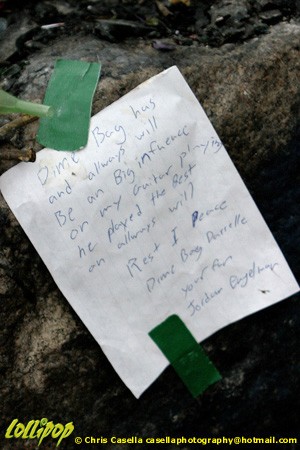 Dime Bag has
and allways will
Be an Big influence
on my Guitar playing
he played the Best
an allways will
Rest I Peace
Dime Bag Darrelle
your Fan
Jordan
Lollipop
© Chris Casella casellaphotography@hotmail.com